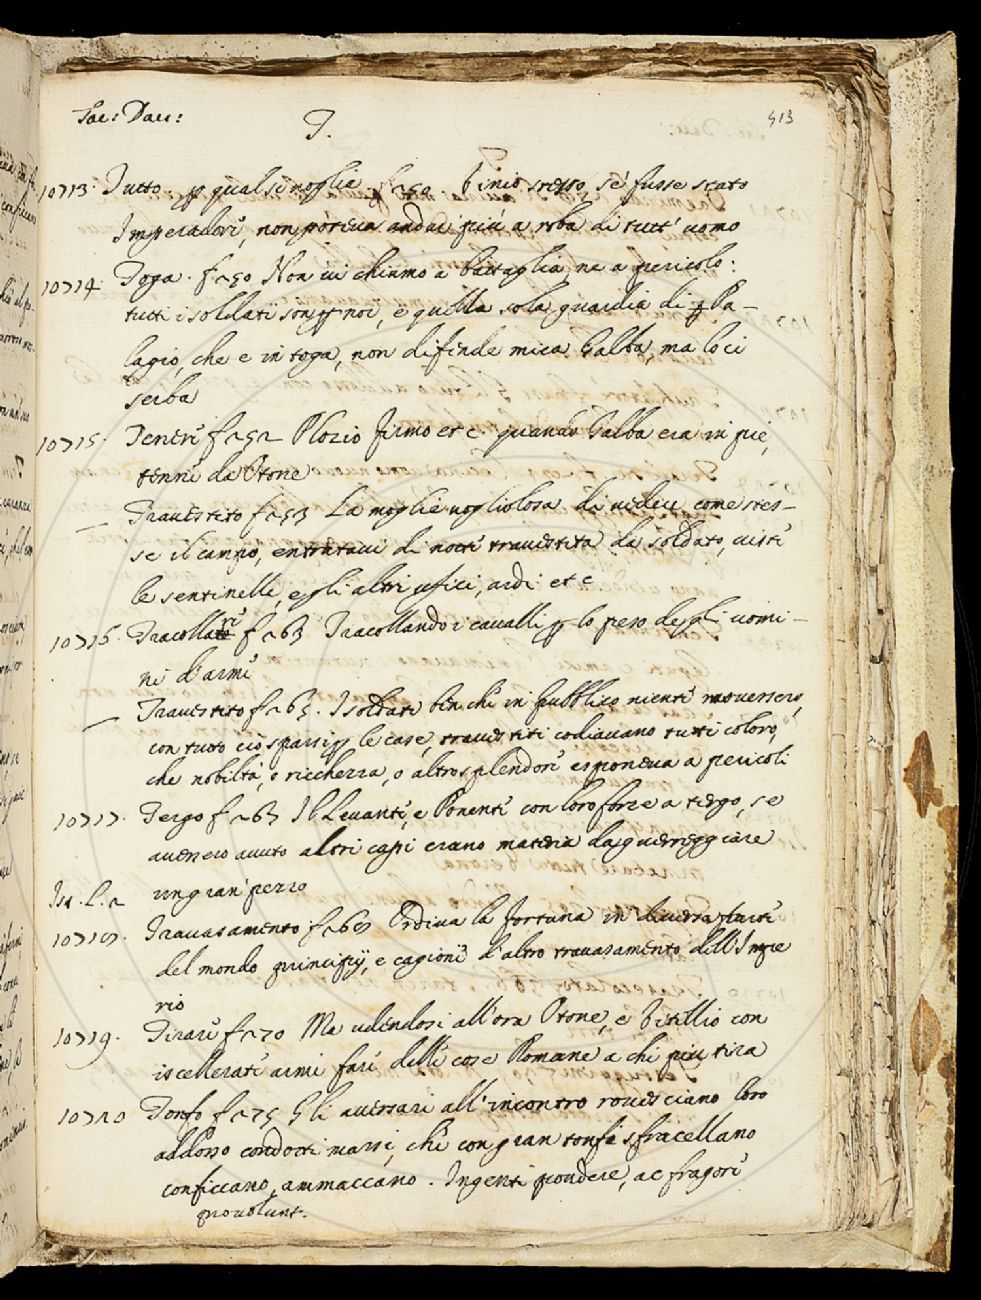 Tac: Dau:
T.
413
10713. Tutto. ꝑ qual se voglia f 250. Tinio stesso, se fusse stato
Imperadore, non poteva andar più a roba di tutt' uomo
10714. Toga. f 250 Non vi chiamo a battaglia, ne a pericolo:
tutti i soldati son ꝑ noi, e quella sola guardia di Pa-
lagio, che e in toga, non difende mica Galba, ma lo ci
serba
10715. Tenere f 252 Plozio Firmo etc. quando Galba era in piè,
tenne da Otone
— Travestito f 253 La moglie vogliolosa di vedere come stes-
se il campo, entratavi di notte travestita da soldato, viste
le sentinelle, e gli altri ufici, ardi etc
10716. Tracollare f 263 Tracollando i cavalli ꝑ lo peso degl' uomi-
ni d'arme
— Travestito f 265. I soldati ben che in pubblico niente movessero,
con tutto ciò sparsi ꝑ le case, travestiti codiavano tutti coloro,
che nobiltà, o ricchezza, o altro splendore esponeva a pericoli
10717. Tergo f 267 Il Levante, e Ponente con loro forze a tergo, se
avessero avuto altri capi erano materia da guerreggiare
un gran pezzo
Ist. L. 2
10718. Travasamento f 269 Ordiva la fortuna in diversa parte
del mondo principij, e cagioni d'altro travasamento dell' Impe
rio
10719. Tirare f 270 Ma udendosi all'ora Otone, e Vitellio con
iscellerate armi fare delle cose Romane a chi più tira
10720 Tonfo f 275 Gli aversari all' incontro rovesciano loro
addosso condotti massi, che con gran tonfi sfracellano
conficcano, ammaccano. Ingenti pondere, ac fragore
provolunt.